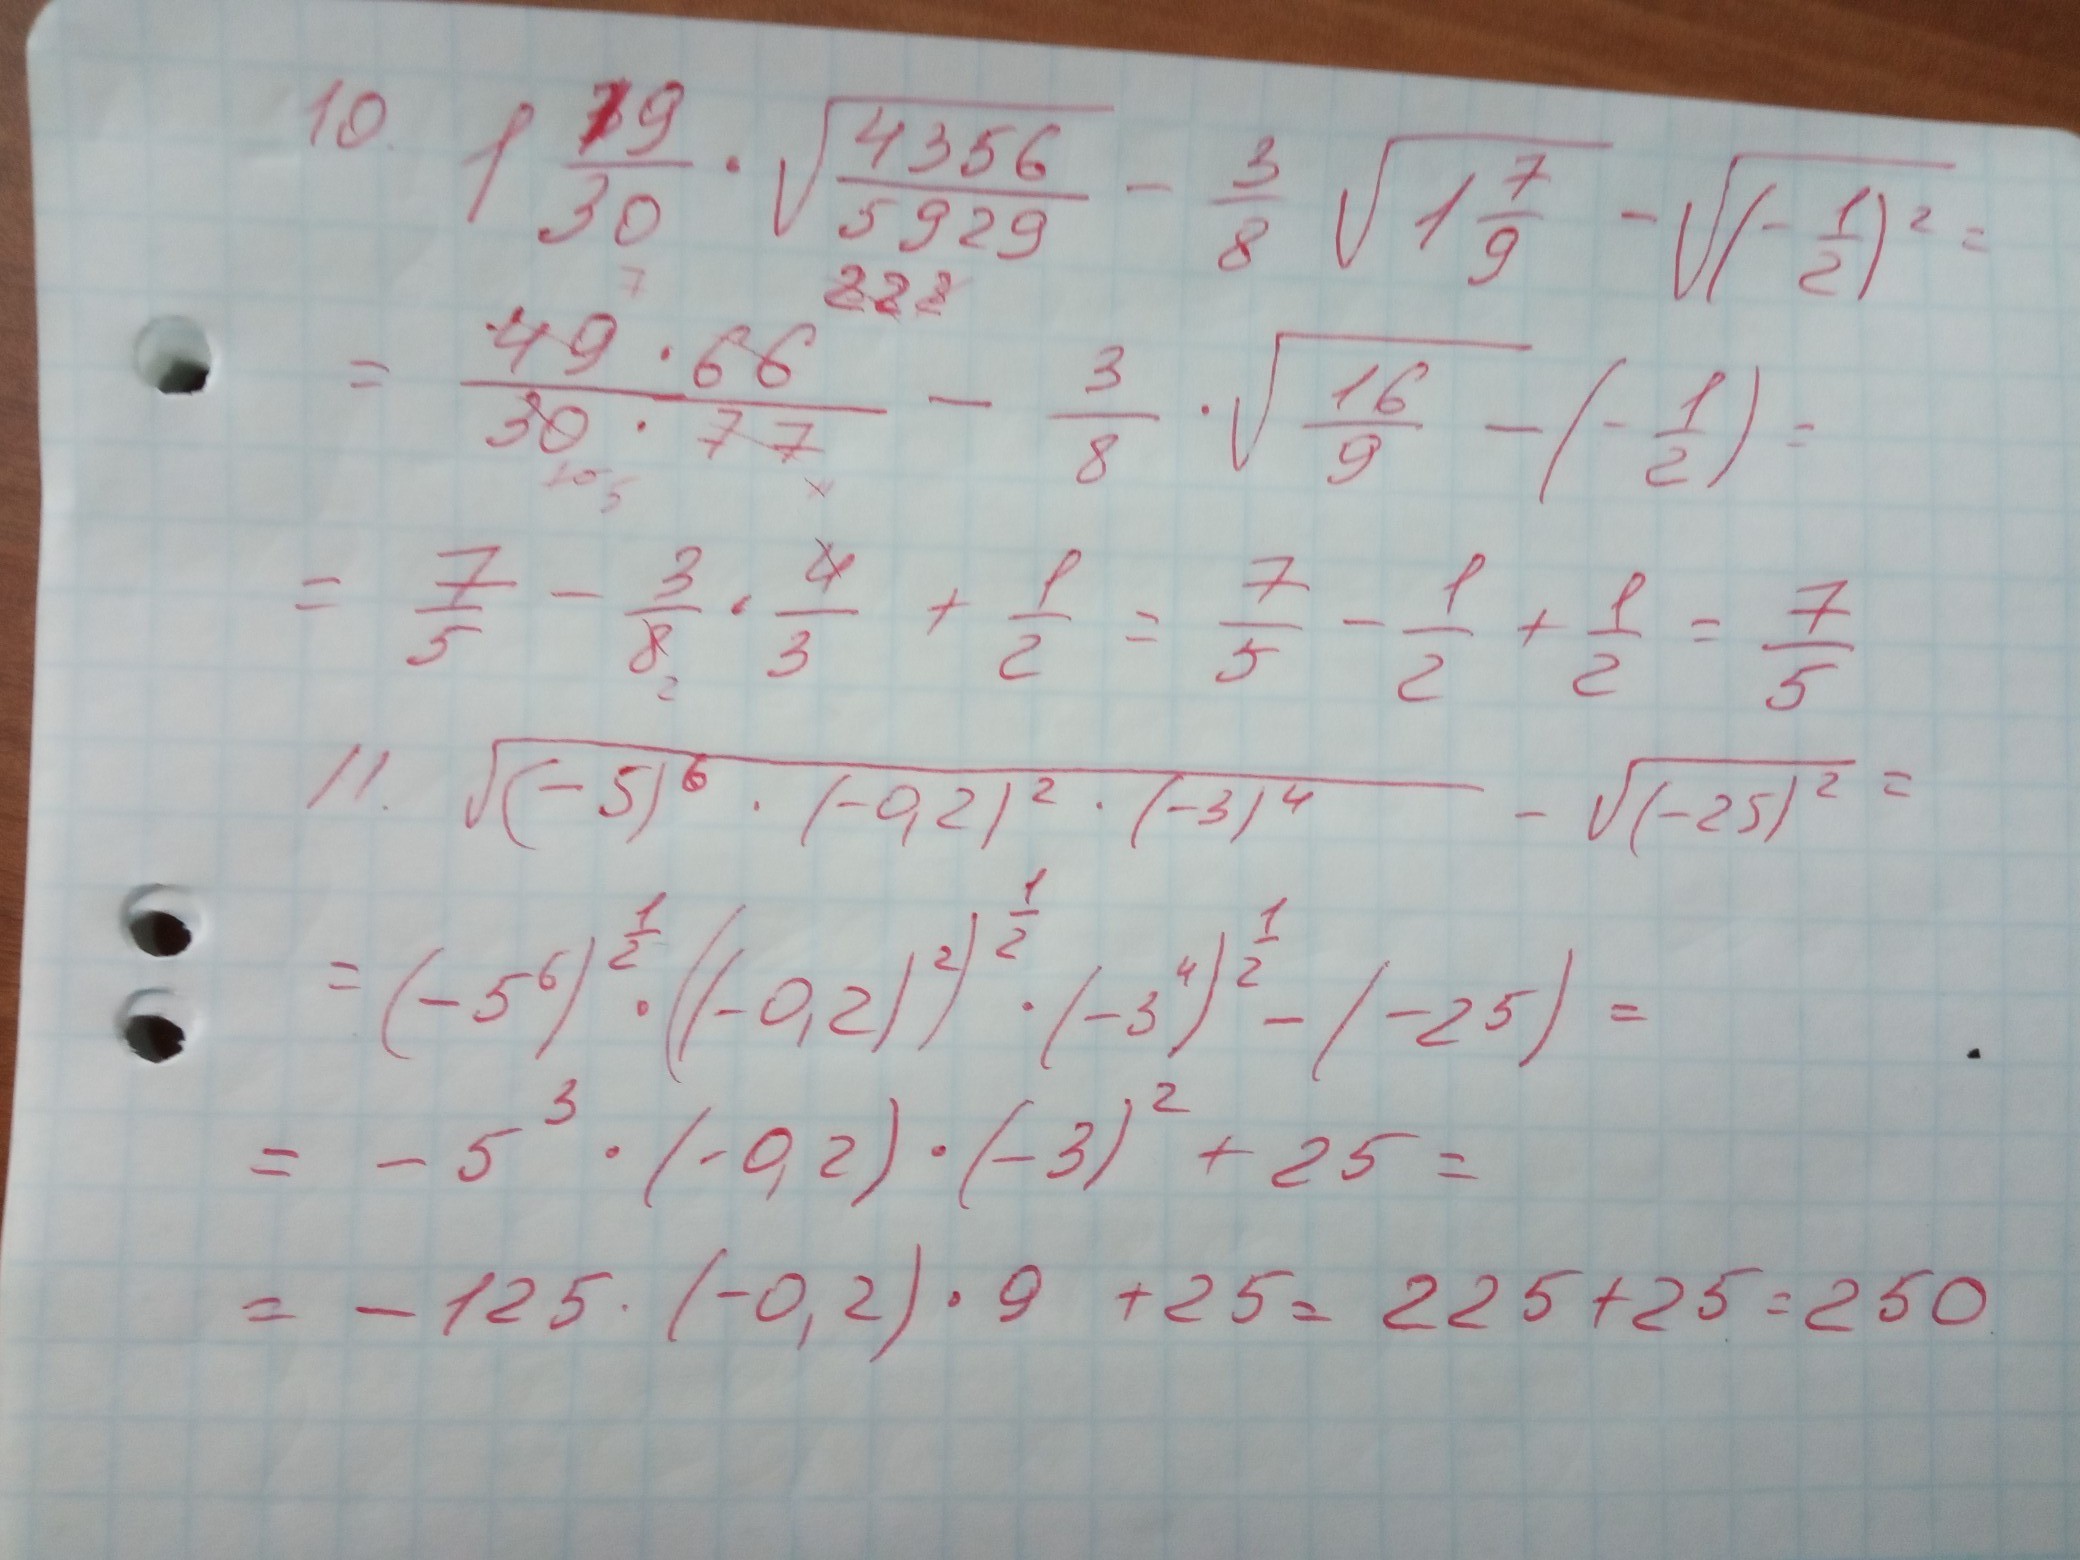 10. 1 19/30 · √(4356/5929) - 3/8 √(1 7/9) - √((-1/2)²) =
= (49 · 66)/(30 · 77) - 3/8 · √(16/9) - (-1/2) =
= 7/5 - 3/8 · 4/3 + 1/2 = 7/5 - 1/2 + 1/2 = 7/5
11. √((-5)⁶ · (-0,2)² · (-3)⁴) - √((-25)²) =
= (-5⁶)^(1/2) · ((-0,2)²)^(1/2) · (-3⁴)^(1/2) - (-25) =
= -5³ · (-0,2) · (-3)² + 25 =
= -125 · (-0,2) · 9 + 25 = 225 + 25 = 250